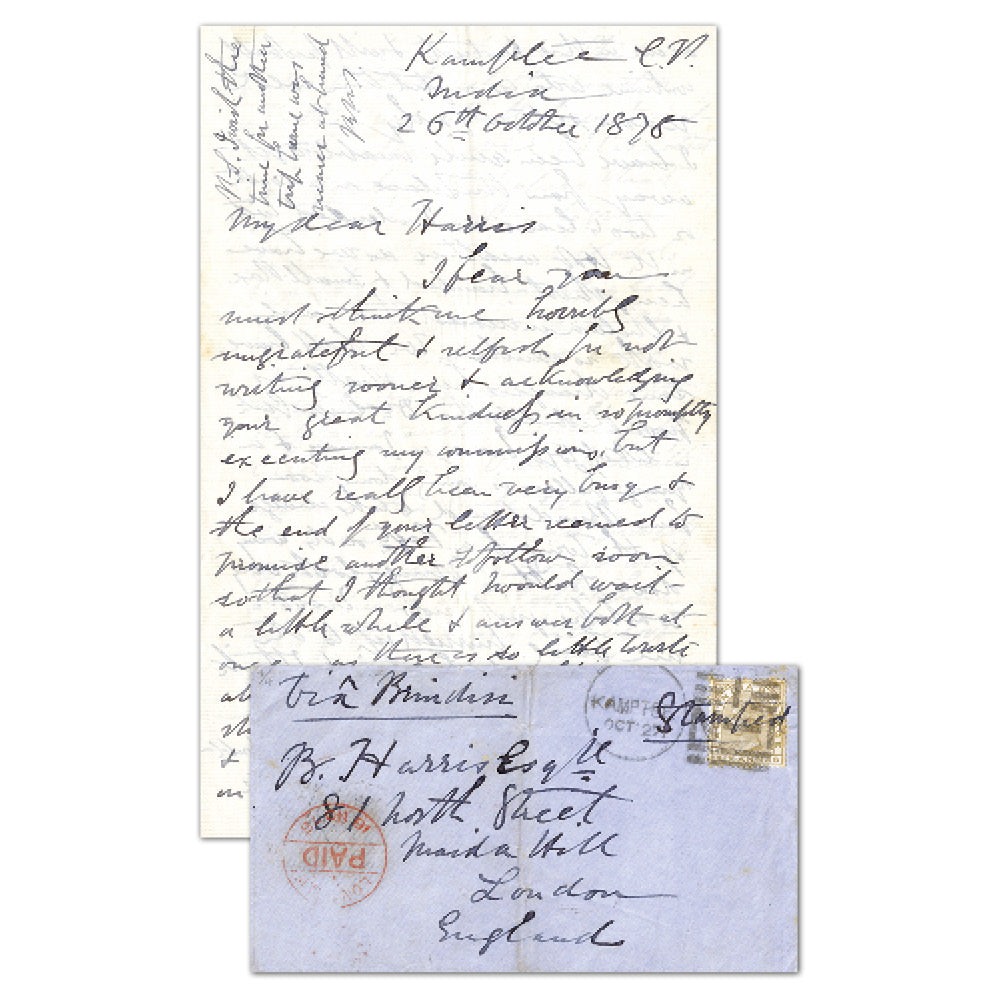 Kamptee C.P.
India
26th October 1875
P.S. I wish the
time for another
trip home was
nearer at hand
My dear Harris
I fear you
must think me horribly
ungrateful & selfish for not
writing sooner & acknowledging
your great kindness in so promptly
executing my commissions, but
I have really been very busy &
the end of your letter seemed to
promise another to follow soon
so that I thought I would wait
a little while & answer both at
once, as there is so little
&
Viâ Brindisi
Stamped
KAMPTEE
OCT 27
B. Harris Esqre
81 North Street
Maida Hill
London
England
PAID